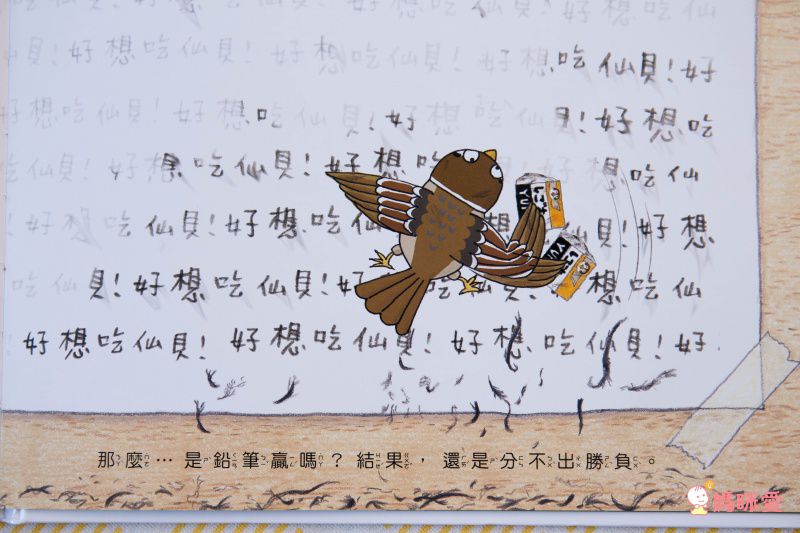 想吃仙
仙貝！好想吃仙貝！好想吃仙貝！好想吃仙貝！好
好想吃仙貝！好想吃仙貝！好想吃仙貝！好想吃
吃仙貝！好想吃仙貝！好想吃 想吃仙
好想吃仙貝！好想吃仙 ！好想
吃仙貝！好想吃仙貝！好 想吃仙
好想吃仙貝！好想吃仙貝！好想吃仙貝！好
那麼…是鉛筆贏嗎？結果，還是分不出勝負。
媽咪愛